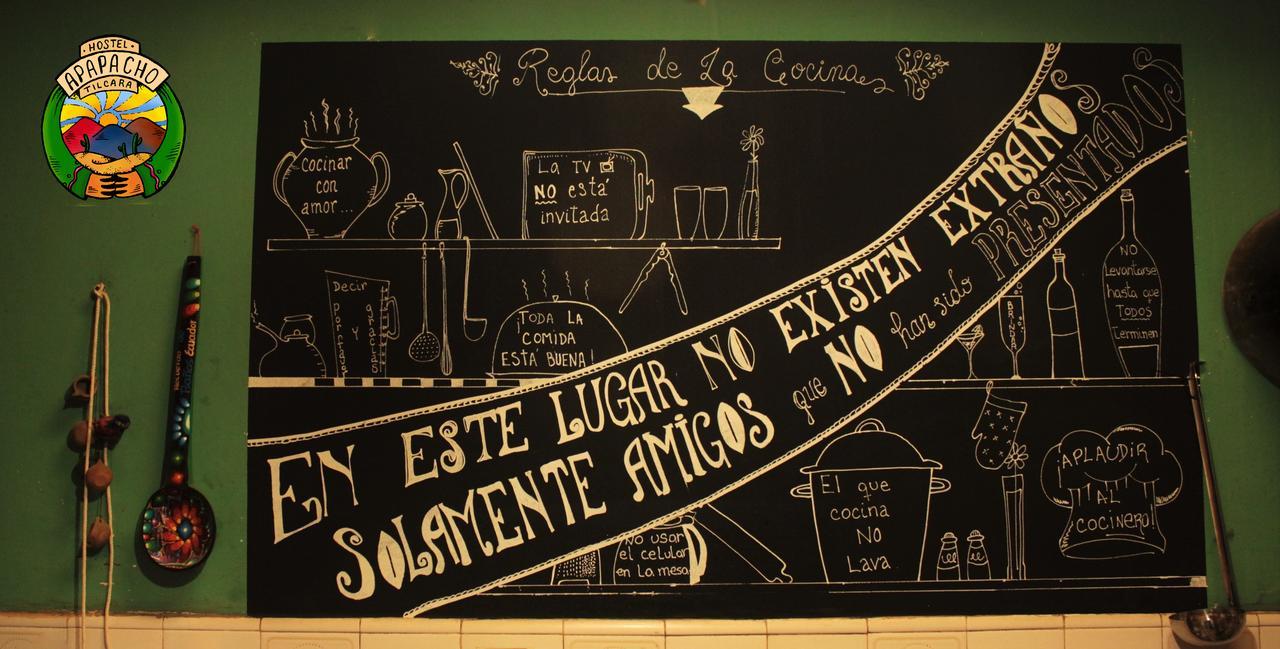 HOSTEL
APAPACHO
TILCARA
Reglas de La Cocina
cocinar
con
amor...
La TV
NO está
invitada
Decir
porfas
y
gracias
¡TODA LA
COMIDA
ESTÁ BUENA!
EN ESTE LUGAR NO EXISTEN EXTRAÑOS
SOLAMENTE AMIGOS que NO han sido PRESENTADOS
BRINDAR
NO
Levantarse
hasta que
TODOS
Terminen
No usar
el celular
en La mesa
El que
cocina
NO
Lava
¡APLAUDIR
AL
COCINERO!
Ecuador